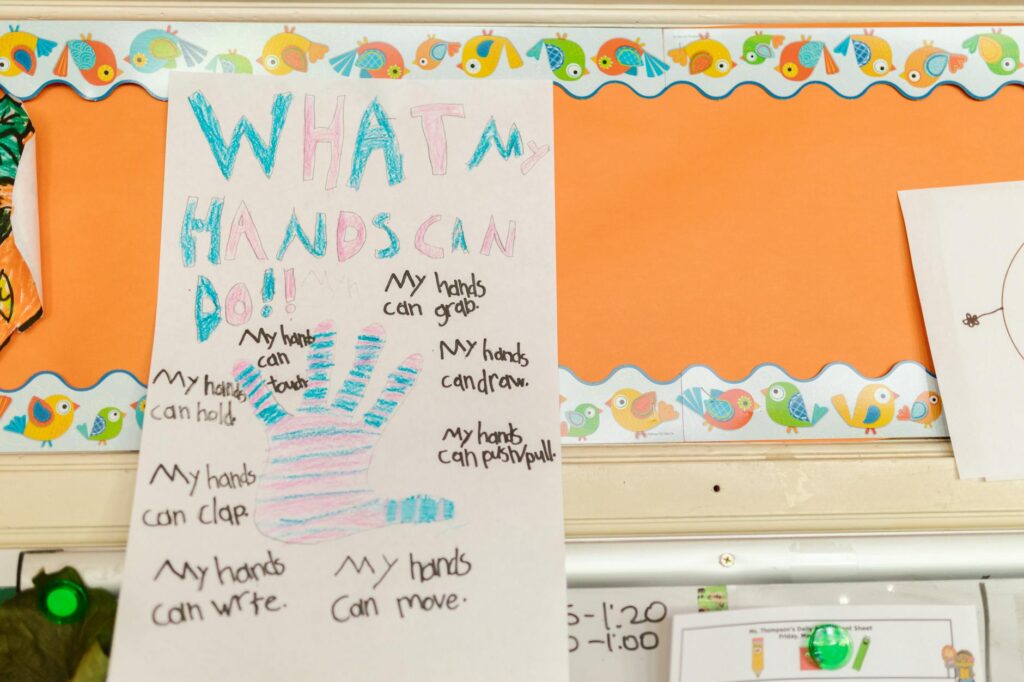 WHAT My
HANDS CAN
DO!!
My hands
can grab.
My hand
can
touch.
My hands
can draw.
My hands
can hold.
My hands
can push/pull.
My hands
can clap.
My hands
can write.
My hands
can move.
-1:20
-1:00
Ms. Thompson's Daily
Sheet
Friday,